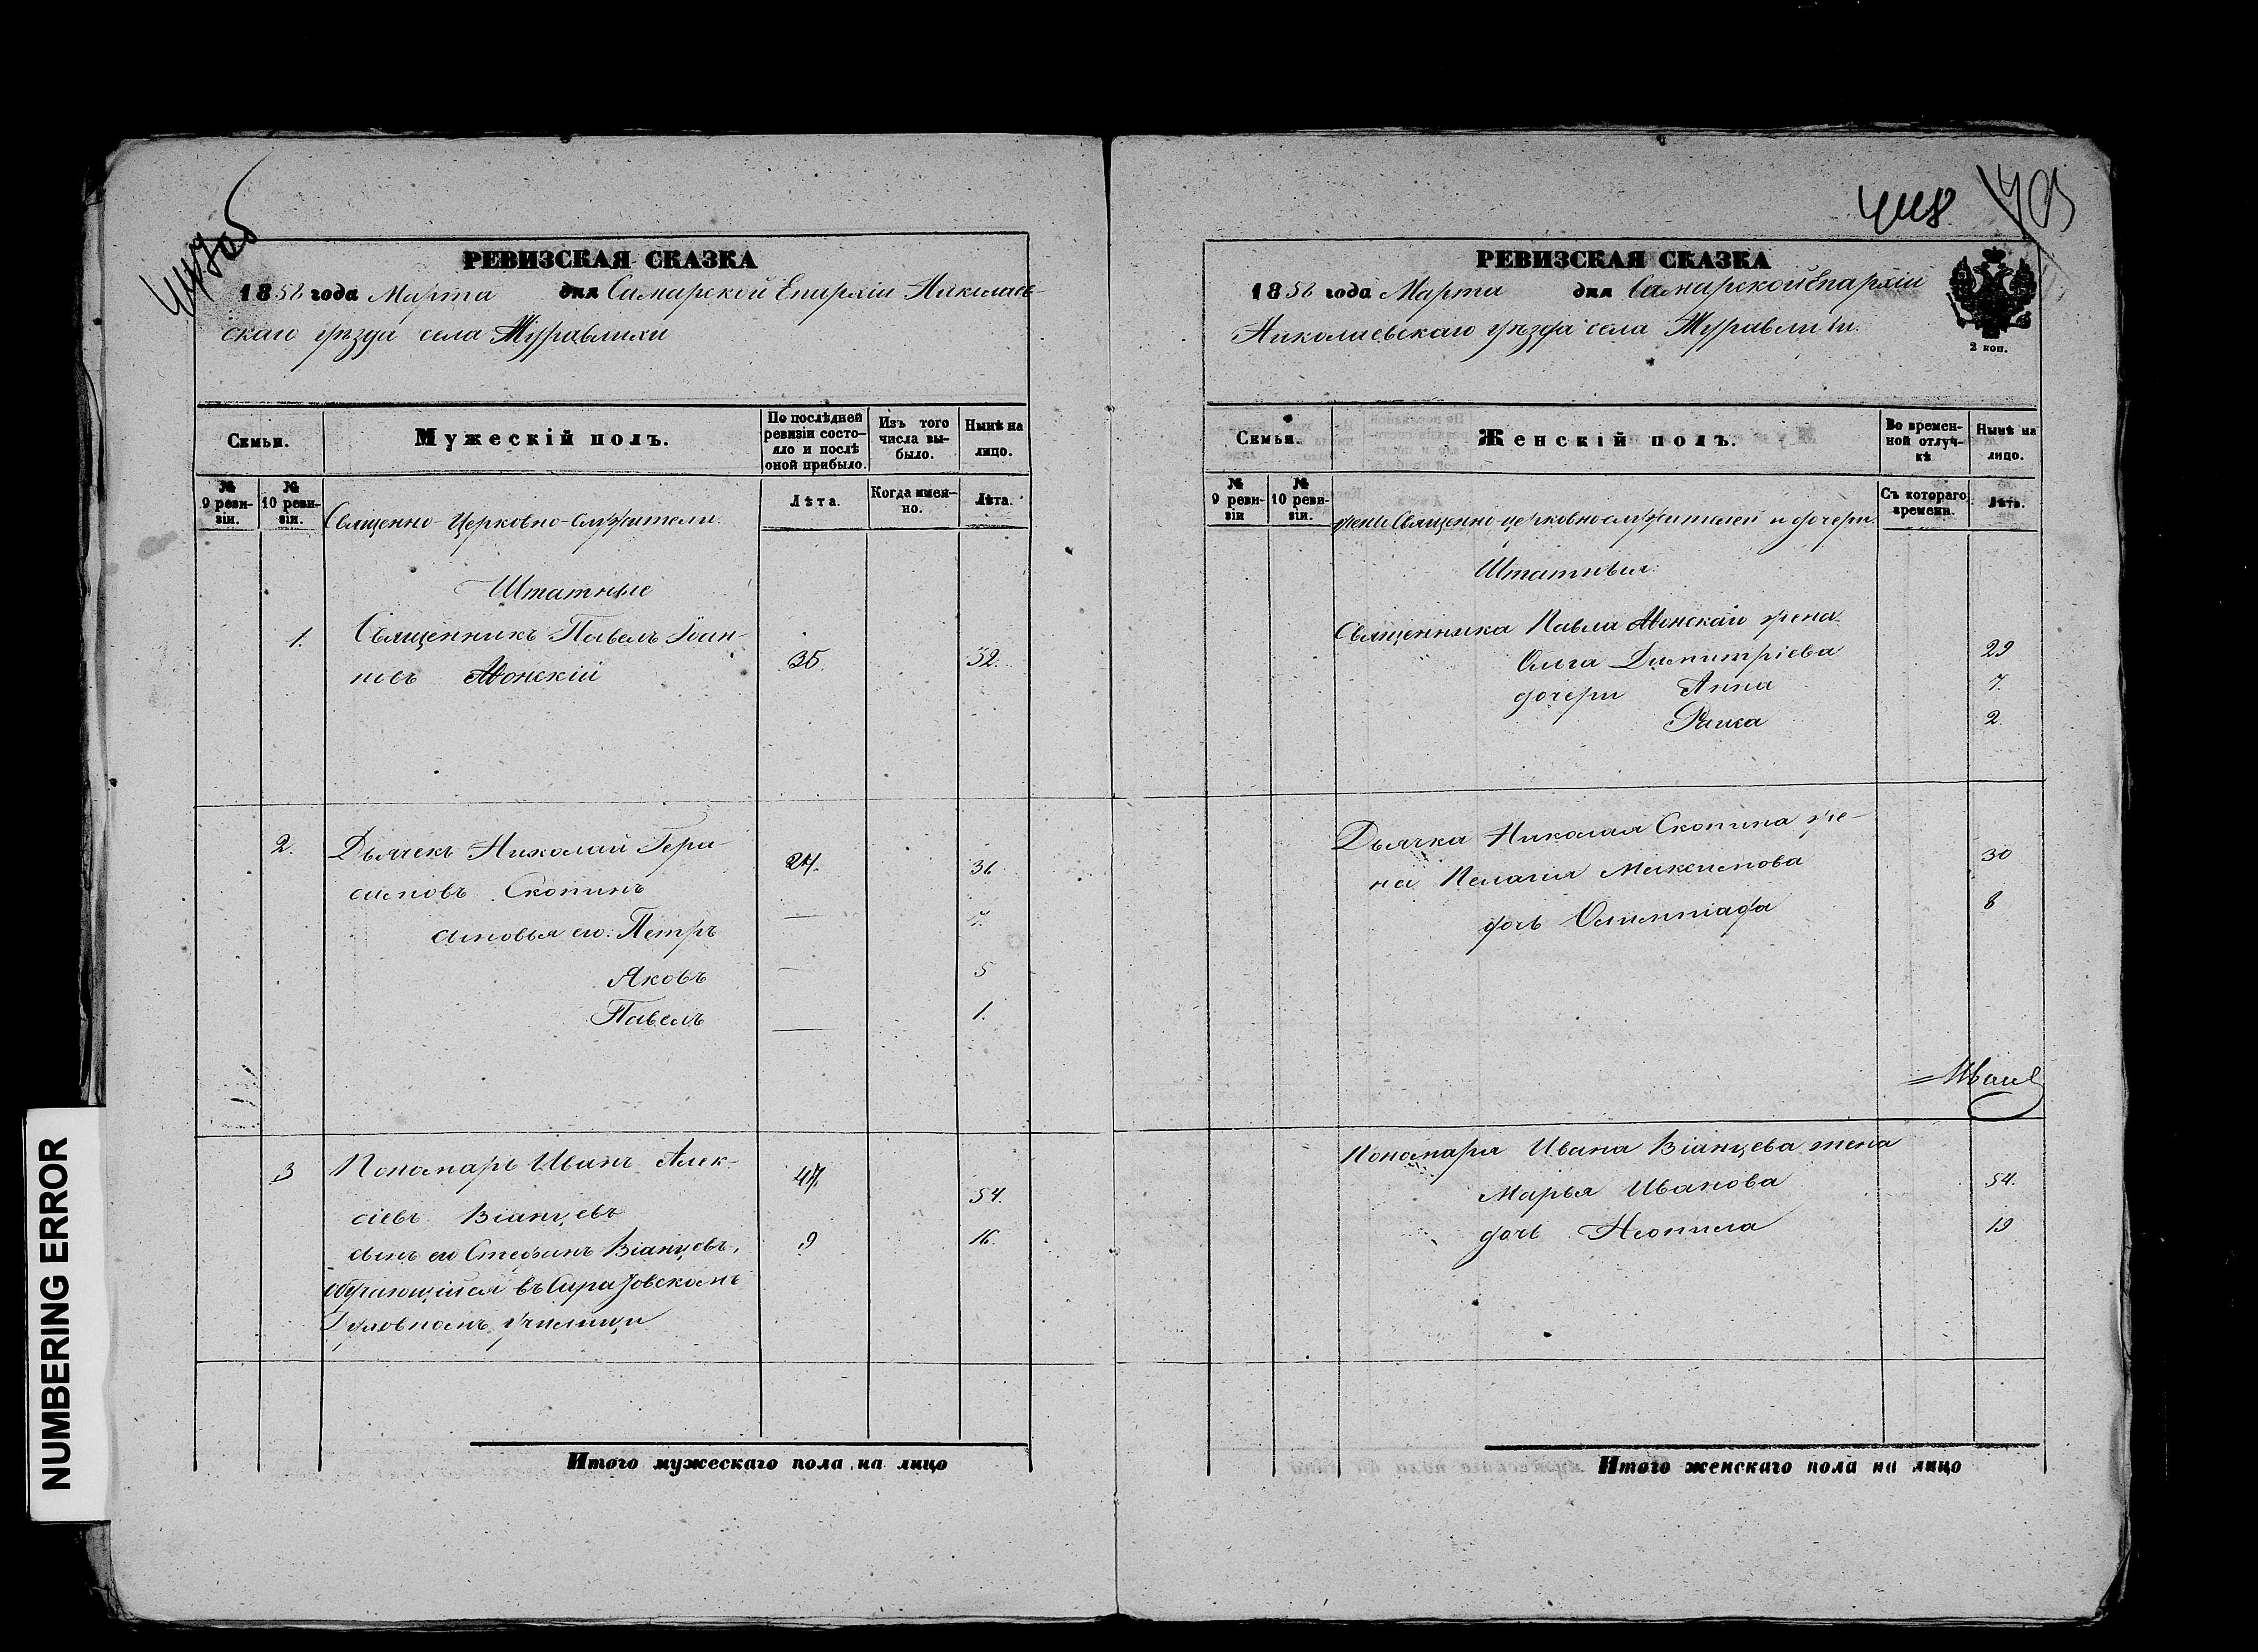 NUMBERING ERROR
РЕВИЗСКАЯ СКАЗКА
1858 года Марта дня Самарской Епархіи Николаев-
скаго уѣзда села Журавлихи
Семьи.
Мужескій полъ.
По послѣдней ревизіи состо-яло и послѣ оной прибыло.
Изъ того числа вы-было.
Нынѣ на лицо.
№ 9 реви-зіи.
№ 10 реви-зіи.
Священно-Церковно-служители.
Лѣта.
Когда имен-но.
Лѣта.
Штатные
1. Священникъ Павелъ Іоан-
новъ Аѳонскій 32.
2. Дьячекъ Николай Гера- 24. 36
симовъ Скопинъ
сыновья его: Петръ — 7.
Яковъ — 5
Павелъ — 1.
3 Пономарь Иванъ Алек- 47. 54.
сіевъ Віанцевъ
сынъ его Стефанъ Віанцевъ, 9 16.
обучающійся въ Саратовскомъ
Духовномъ училищи
Итого мужескаго пола на лицо
448
РЕВИЗСКАЯ СКАЗКА
1858 года Марта дня Самарской Епархіи
Николаевскаго уѣзда села Журавлихи.
2 коп.
Семьи.
Женскій полъ.
Во времен-ной отлуч-кѣ
Нынѣ на лицо.
№ 9 реви-зіи
№ 10 реви-зіи.
жены Священно-церковнослужителей и дочери.
Съ котораго времени.
Лѣта.
Штатныя:
Священника Павла Аѳонскаго жена
Ольга Димитріева 29
дочери Анна 7.
Раиса 2
Дьячка Николая Скопина же-
на Пелагія Максимова 30
дочь Олимпіада 8
Пономаря Ивана Віанцева жена
Марья Иванова 54.
дочь Неонила 19
Итого женскаго пола на лицо